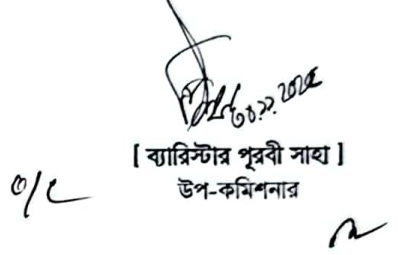 ৩০.১১.২০২৫
[ ব্যারিস্টার পূরবী সাহা ]
উপ-কমিশনার